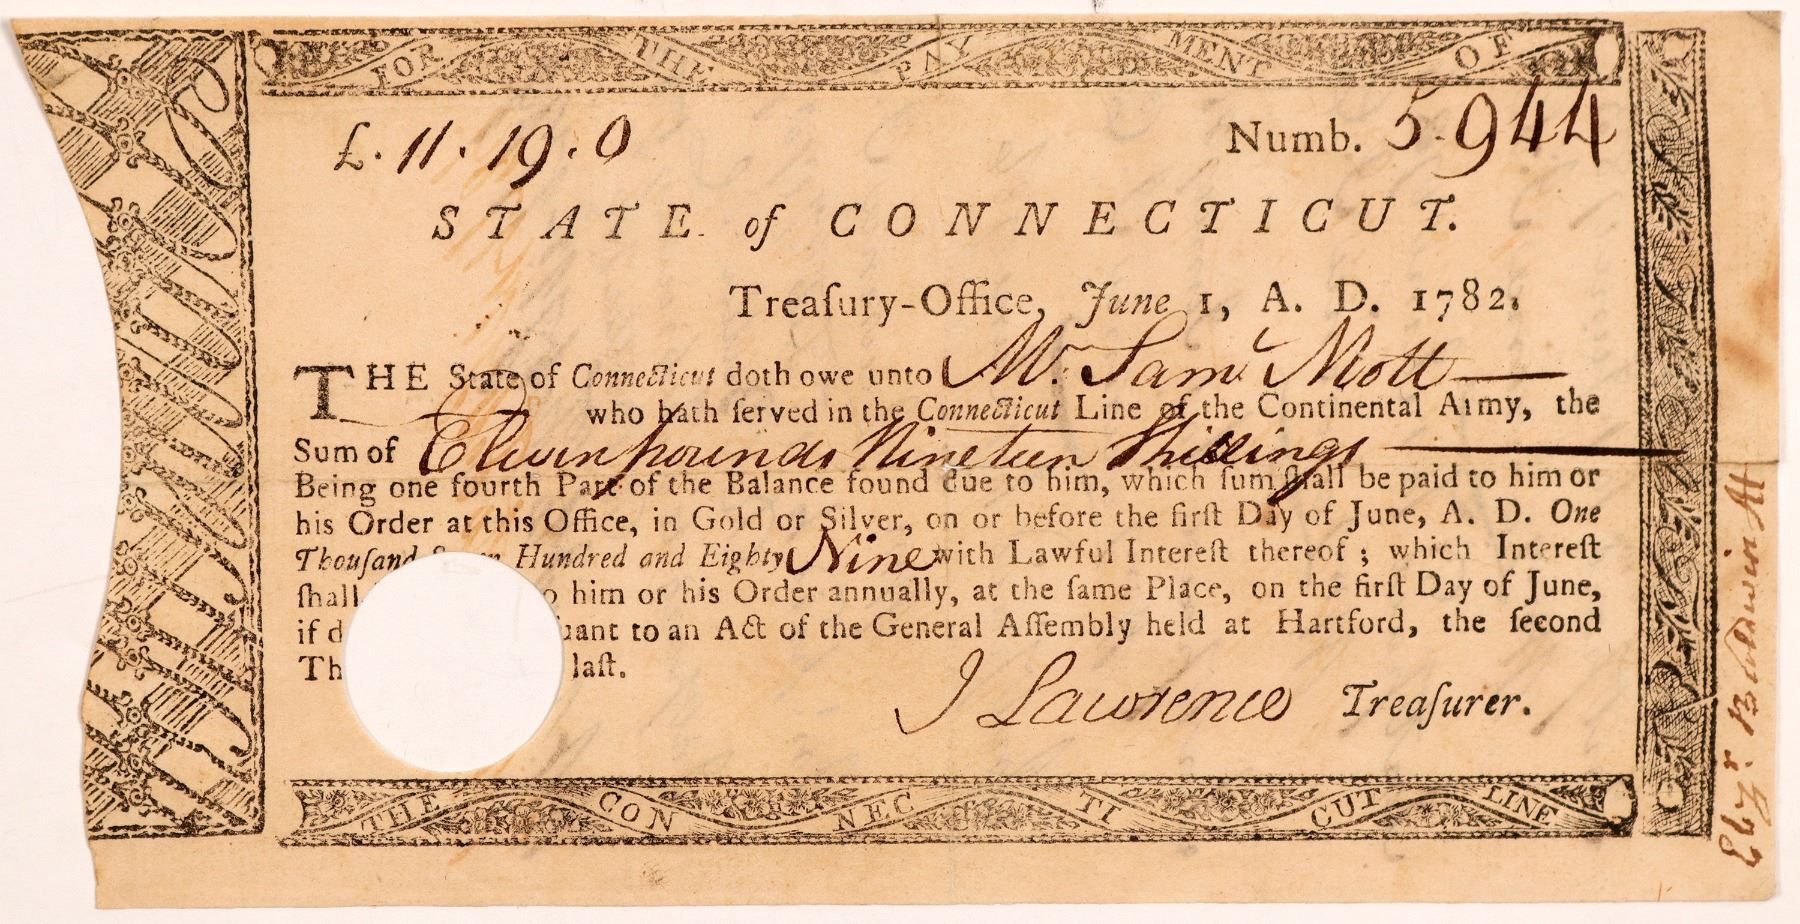 FOR THE PAYMENT OF
£. 11. 19. 0 Numb. 5.944
STATE of CONNECTICUT.
Treaſury-Office, June 1, A. D. 1782.
THE State of Connecticut doth owe unto Mr. Saml Mott
who hath ſerved in the Connecticut Line of the Continental Army, the
Sum of Eleven pounds Nineteen Shillings
Being one fourth Part of the Balance found due to him, which ſum ſhall be paid to him or
his Order at this Office, in Gold or Silver, on or before the firſt Day of June, A. D. One
Thouſand Hundred and Eighty Nine with Lawful Intereſt thereof ; which Intereſt
ſhall him or his Order annually, at the ſame Place, on the firſt Day of June,
if to an Act of the General Aſſembly held at Hartford, the ſecond
laſt.
J Lawrence Treaſurer.
THE CONNECTICUT LINE
Baldwin